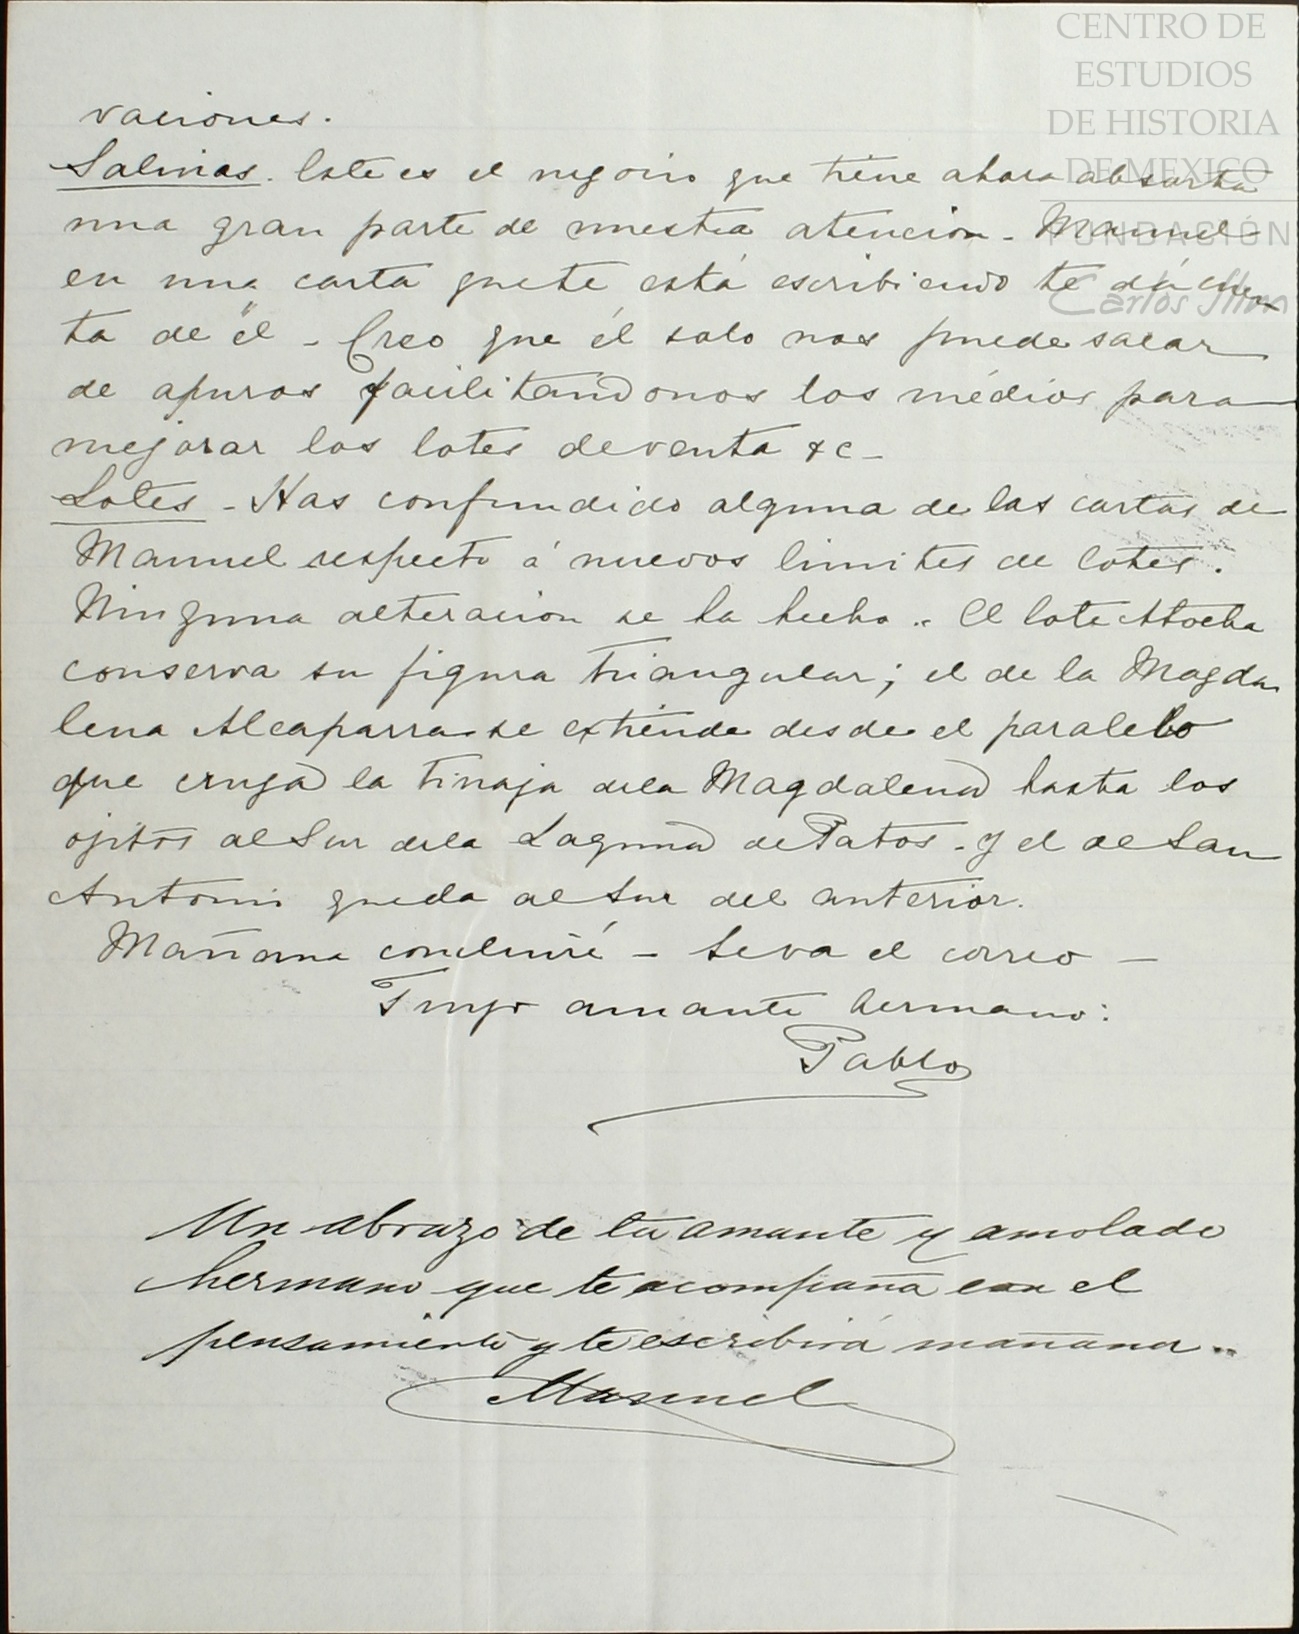 CENTRO DE
ESTUDIOS
DE HISTORIA
DE MEXICO
FUNDACIÓN
Carlos Slim
vaciones.
Salinas. Este es el negocio que tiene ahora absorta
una gran parte de nuestra atencion - Manuel
en una carta que te está escribiendo te dá cuen
ta de él - Creo que él solo nos puede sacar
de apuros facilitandonos los médios para
mejorar los lotes de venta &c -
Lotes - Has confundido alguna de las cartas de
Manuel respecto á nuevos limites de lotes.
Ninguna alteracion se ha hecho .. El lote Atocha
conserva su figura triangular; el de la Magda
lena Alcaparra se extiende desde el paralelo
que cruza la tinaja de la Magdalena hasta los
ojitos al Sur de la Laguna de Patos - y el de San
Antonio queda al Sur del anterior.
Mañana concluiré - Se va el correo -
Tuyo amante hermano:
Pablo
Un abrazo de tu amante y amolado
hermano que te acompaña con el
pensamiento y te escribirá mañana ..
Manuel